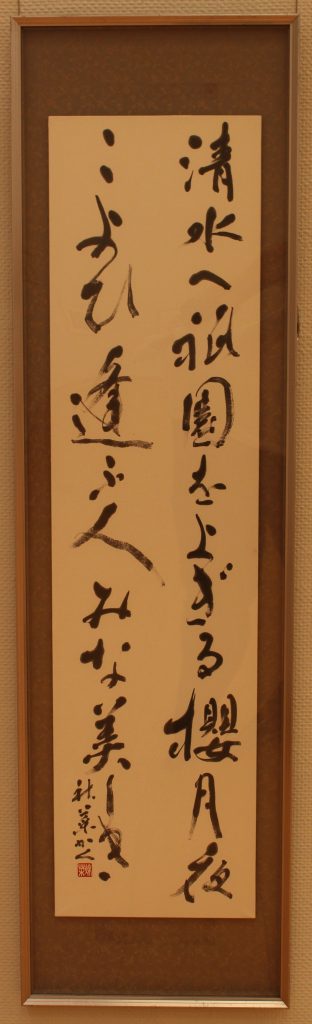 清水へ祇園をよぎる櫻月夜
こよひ逢ふ人みな美しき